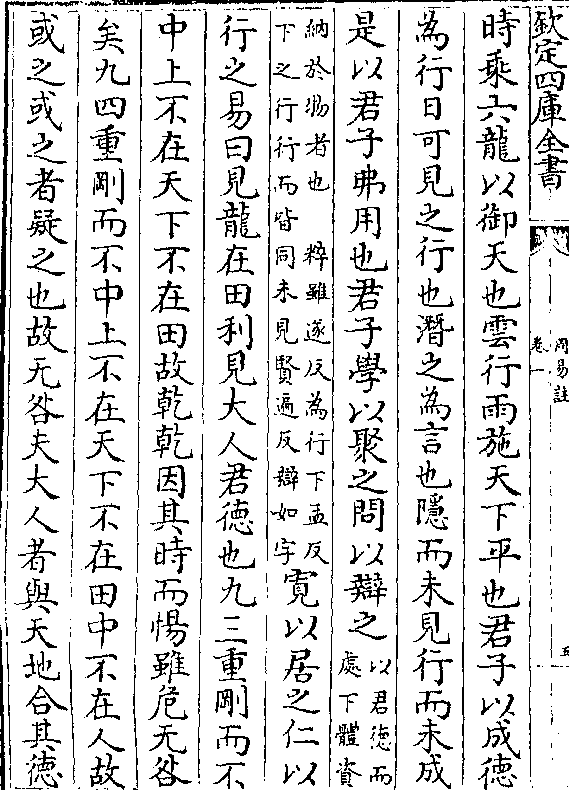 欽定四庫全書
周易註
卷一
五
時乘六龍以御天也雲行雨施天下平也君子以成德
為行日可見之行也潛之為言也隱而未見行而未成
是以君子弗用也君子學以聚之問以辯之
以君德而
處下體資
納於物者也 粹雖遂反為行下孟反
下之行行而皆同未見賢遍反辯如字
寛以居之仁以
行之易曰見龍在田利見大人君德也九三重剛而不
中上不在天下不在田故乾乾因其時而惕雖危无咎
矣九四重剛而不中上不在天下不在田中不在人故
或之或之者疑之也故无咎夫大人者與天地合其德